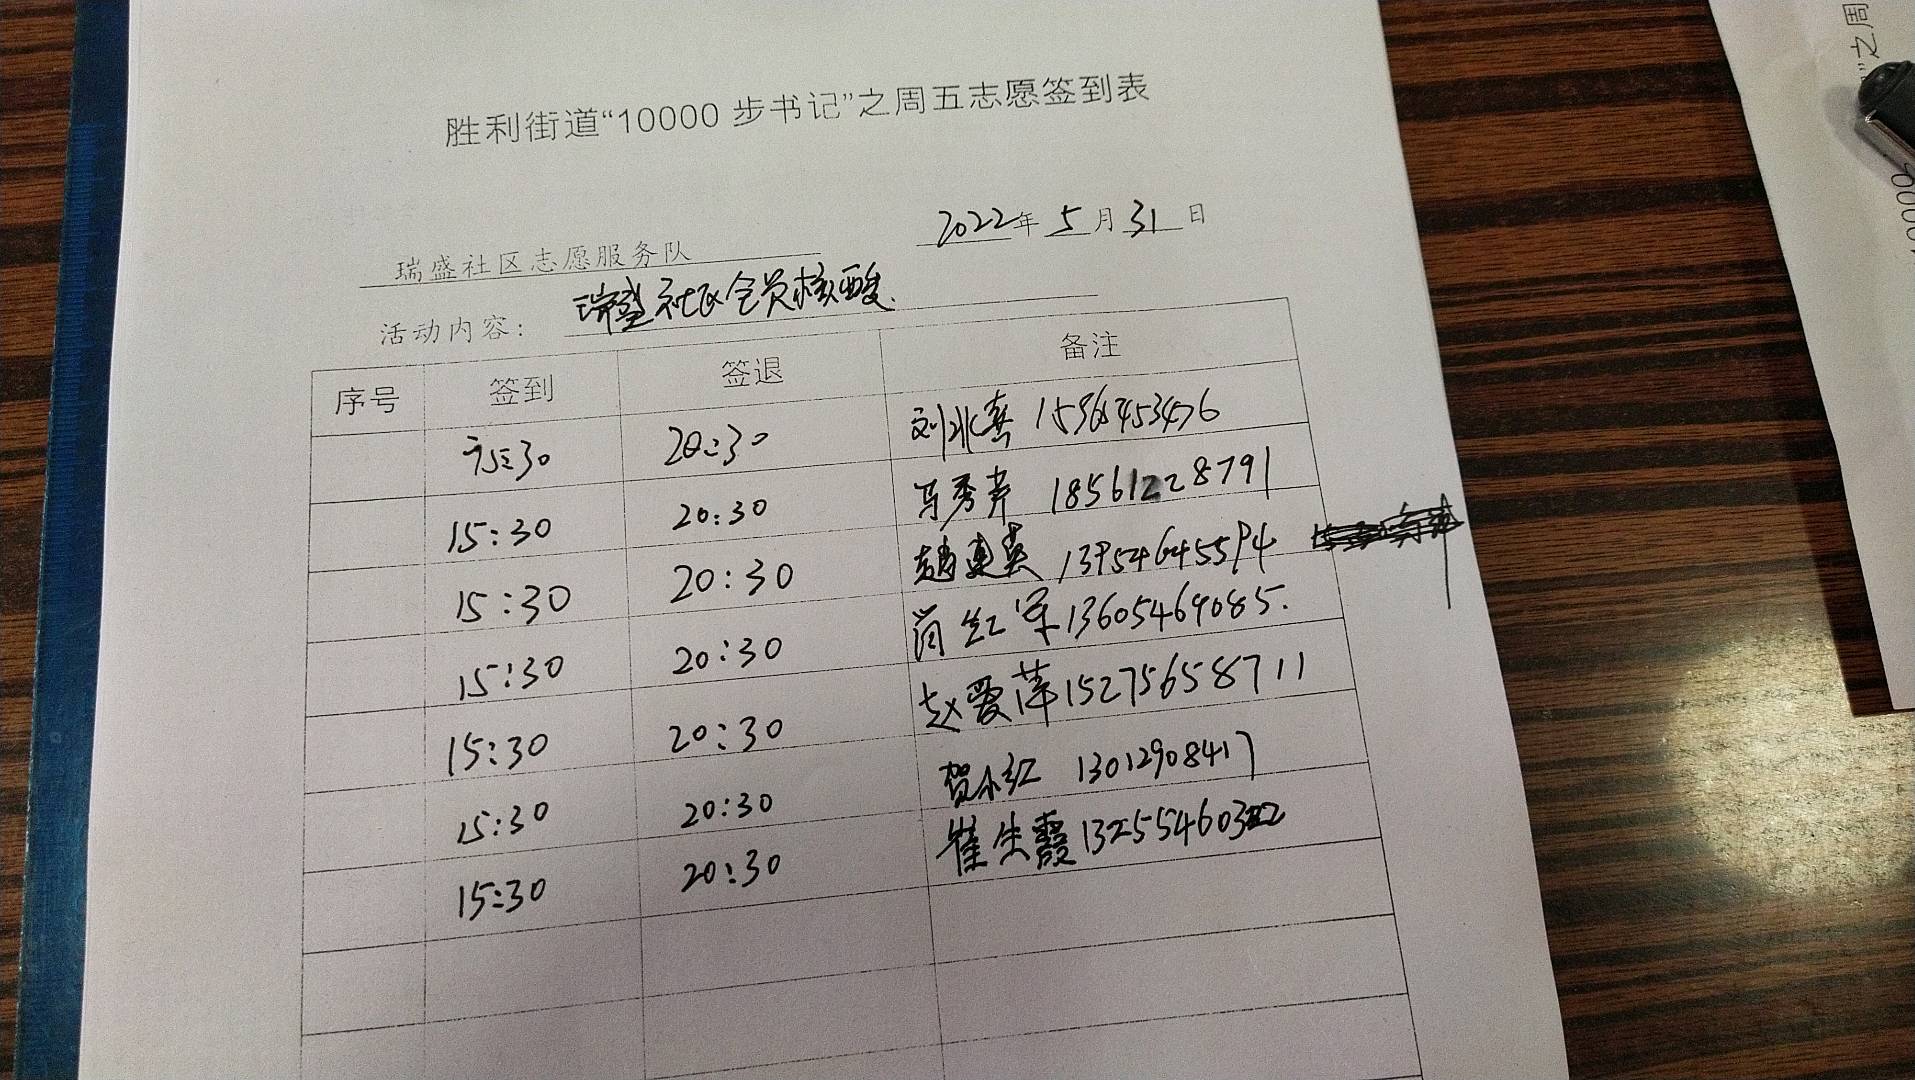 胜利街道“10000 步书记”之周五志愿签到表
2022年 5月 31日
瑞盛社区志愿服务队
活动内容： 瑞盛社区全员核酸.
序号 签到 签退 备注
20:30 刘冰燕
15:30 20:30 马秀芹 18561228791
15:30 20:30 赵连英 13954645594
15:30 20:30 红军 13605469085.
15:30 20:30 赵爱萍 15275658711
15:30 20:30 贺永红 13012908417
15:30 20:30 崔生霞 13255460322
”之周
10000